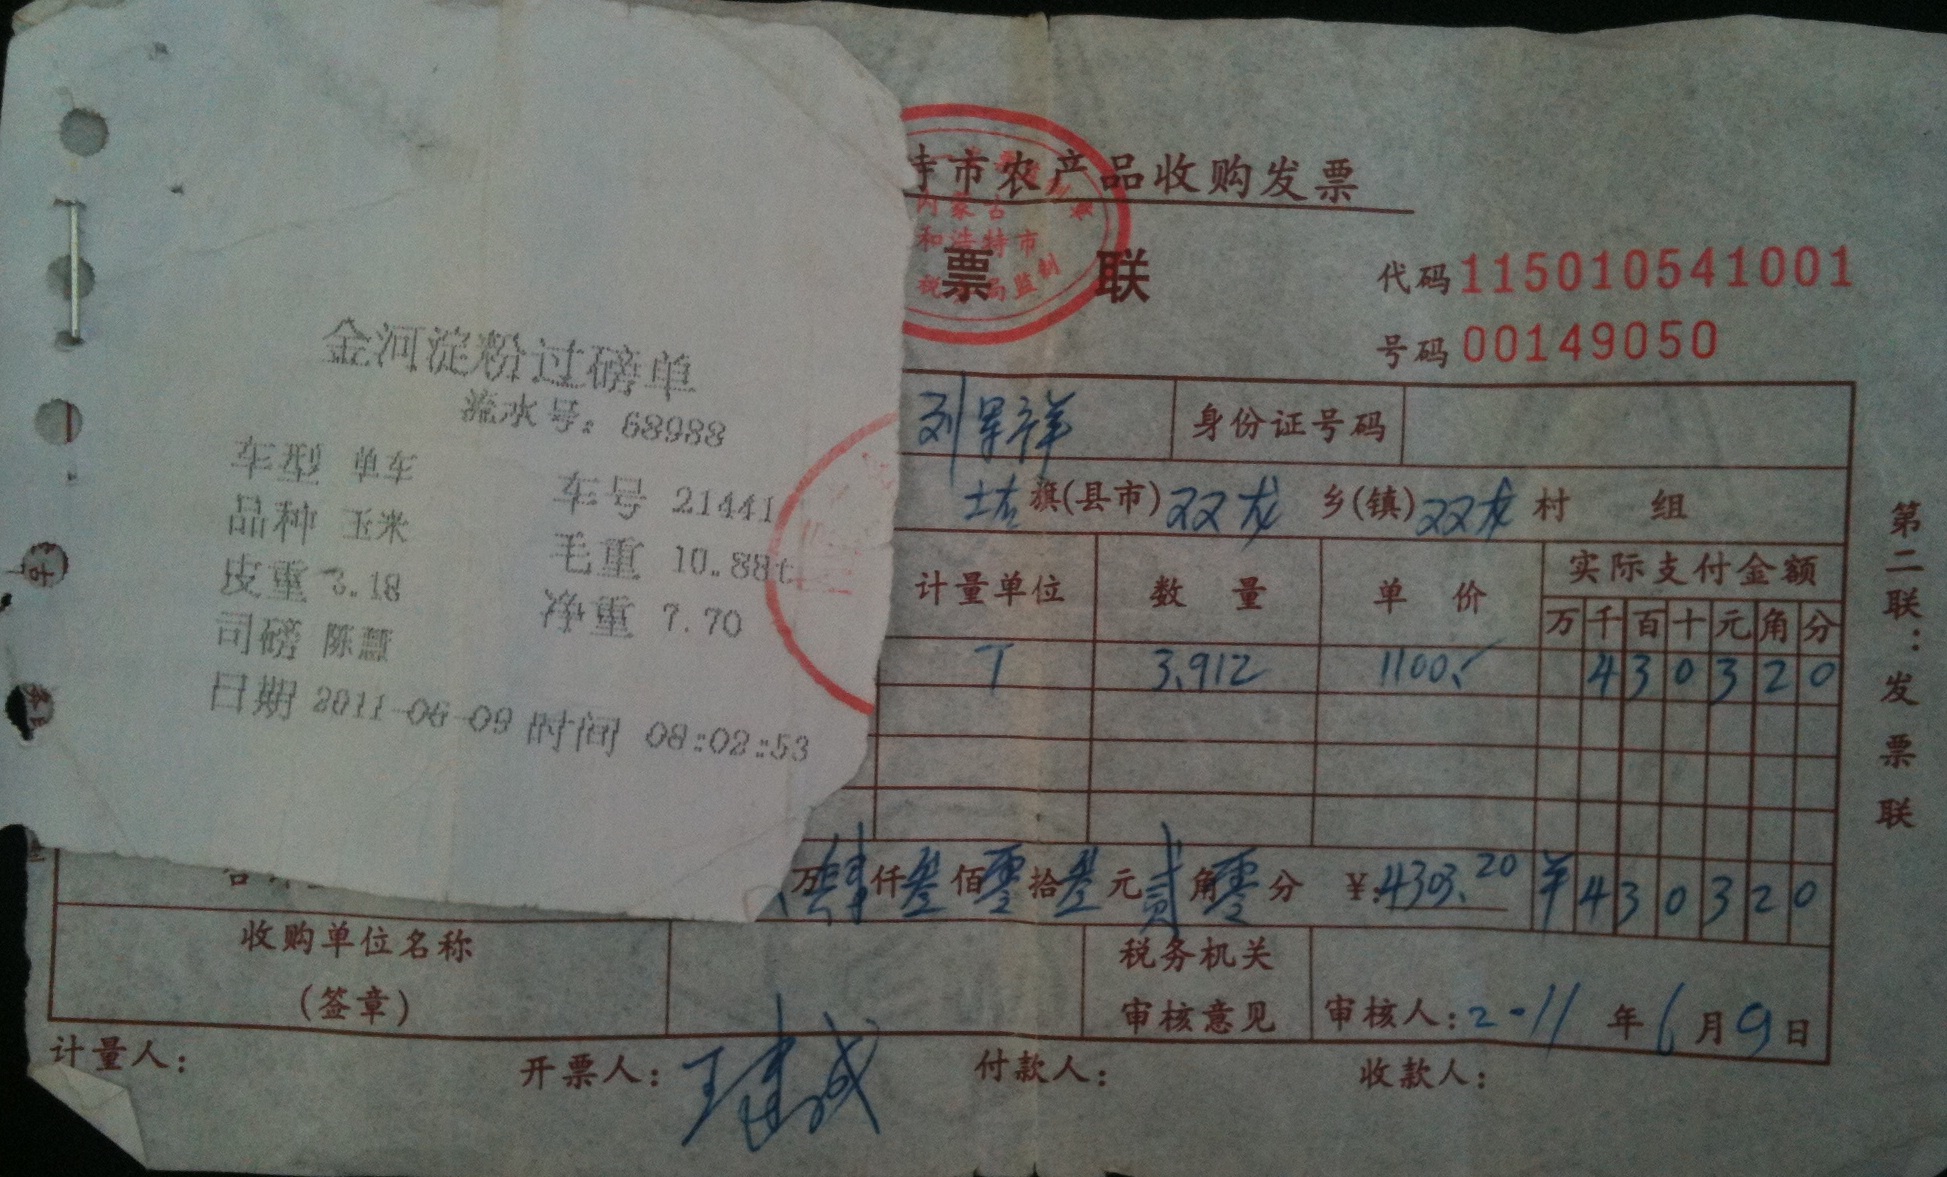 金河淀粉过磅单
流水号: 68988
车型 单车 车号 21441
品种 玉米 毛重 10.88t
皮重 3.18 净重 7.70
司磅 陈慧
日期 2011-06-09 时间 08:02:53
特市农产品收购发票
票 联
内蒙古
和浩特市
税 局监制
代码 115010541001
号码 00149050
刘军祥 身份证号码
土右 旗(县市) 双龙 乡(镇) 双龙 村 组
计量单位 数 量 单 价 实际支付金额
万 千 百 十 元 角 分
T 3.912 1100.- 4 3 0 3 2 0
万 肆 仟 叁 佰 零 拾 叁 元 贰 角 零 分 ¥:4303.20 ¥ 4 3 0 3 2 0
收购单位名称
(签章)
税务机关
审核意见
审核人: 2-11 年 6 月 9 日
计量人: 开票人: 王建成 付款人: 收款人:
第二联:发票联